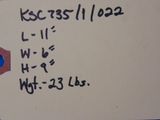 KSC735/1/022
L-11"
W-6"
H-9"
Wgt.-23 Lbs.